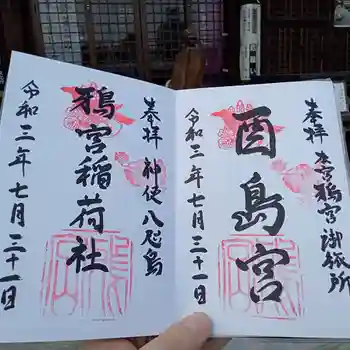 奉拝 本宮鴉宮御旅所
酉島宮
令和三年七月三十一日
奉拝 神使八咫烏
鴉宮稲荷社
令和三年七月三十一日